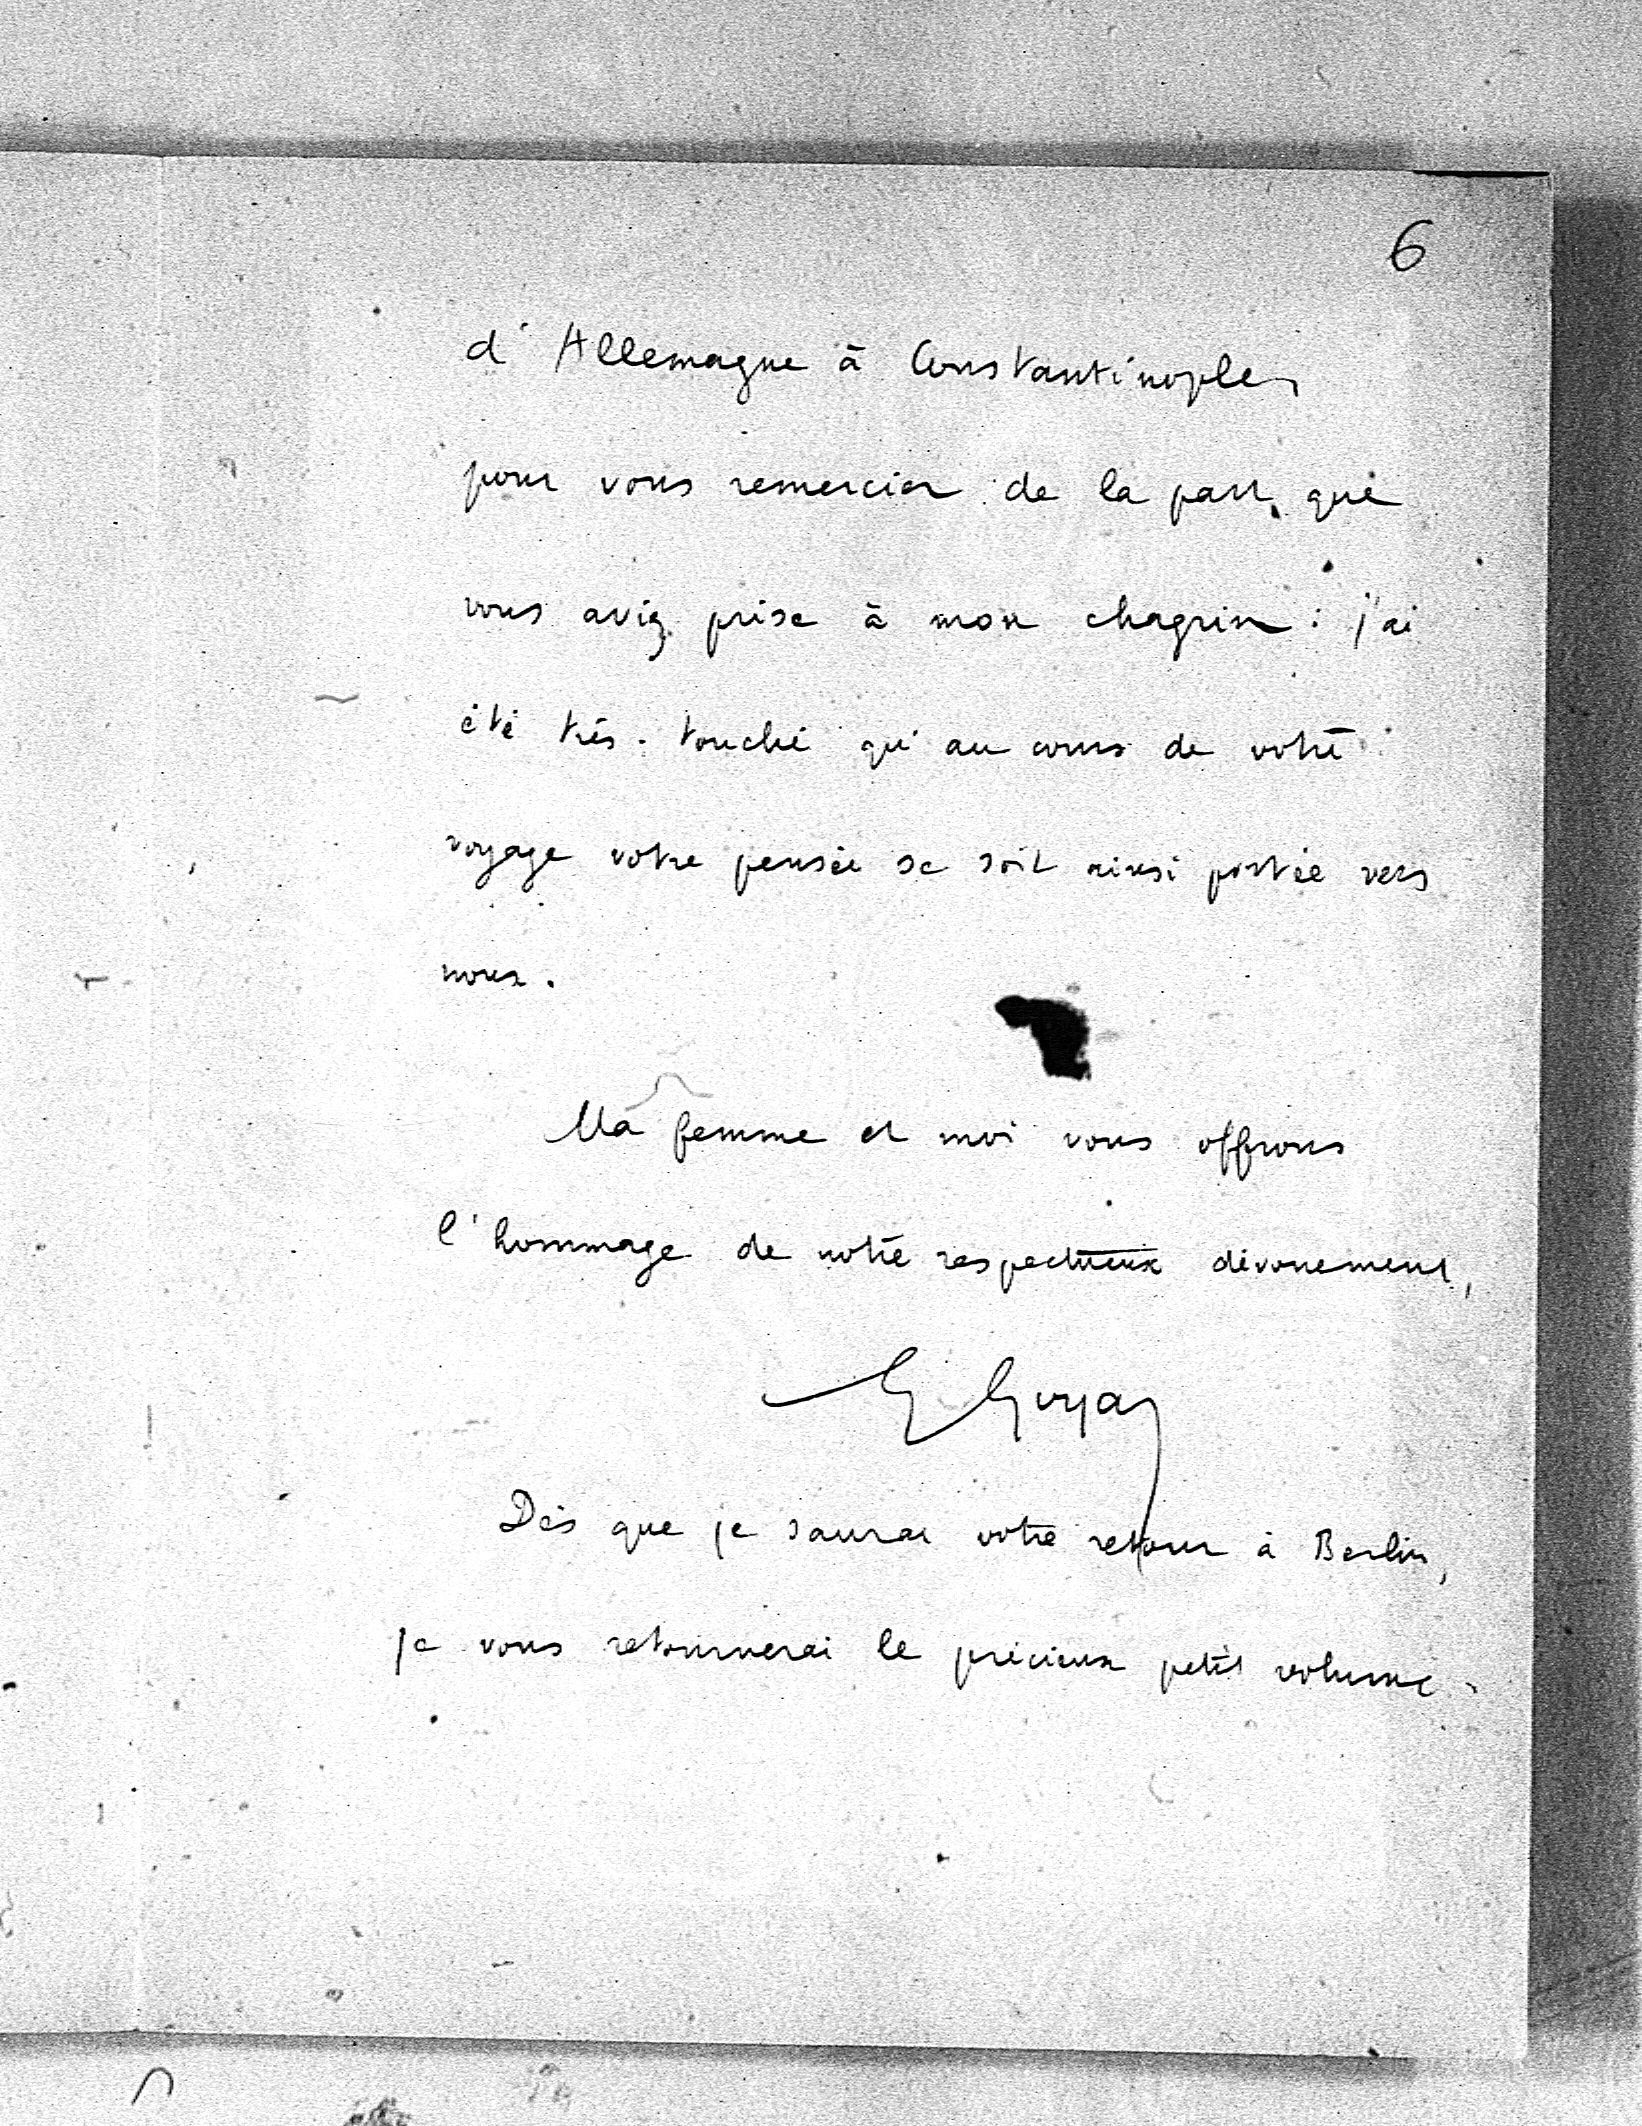 6
d'Allemagne à Constantinople,
pour vous remercier de la part que
vous aviez prise à mon chagrin : j'ai
été très touché qu'au cours de votre
voyage votre pensée se soit ainsi portée vers
nous.
Ma femme et moi vous offrons
l'hommage de notre respectueux dévouement,
G Goyau
Dès que je saurai votre retour à Berlin,
je vous retournerai le précieux petit volume.